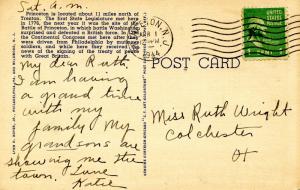 Sat. a.m
Princeton is located about 11 miles north of
Trenton. The first State Legislature met here
in 1776, the next year it was the site of the
Battle of Princeton, in which battle Washington
surprised and defeated a British force. In 1783
the Continental Congress met here after they
were driven from Philadelphia by mutinous
soldiers, and while here they received the
news of the signing of the treaty of peace
with Great Britain.
POST CARD
My dear Ruth,
I am having
a grand time
with my
family My
grandsons are
showing me the
town, Love
Katie
Miss Ruth Wright
Colchester